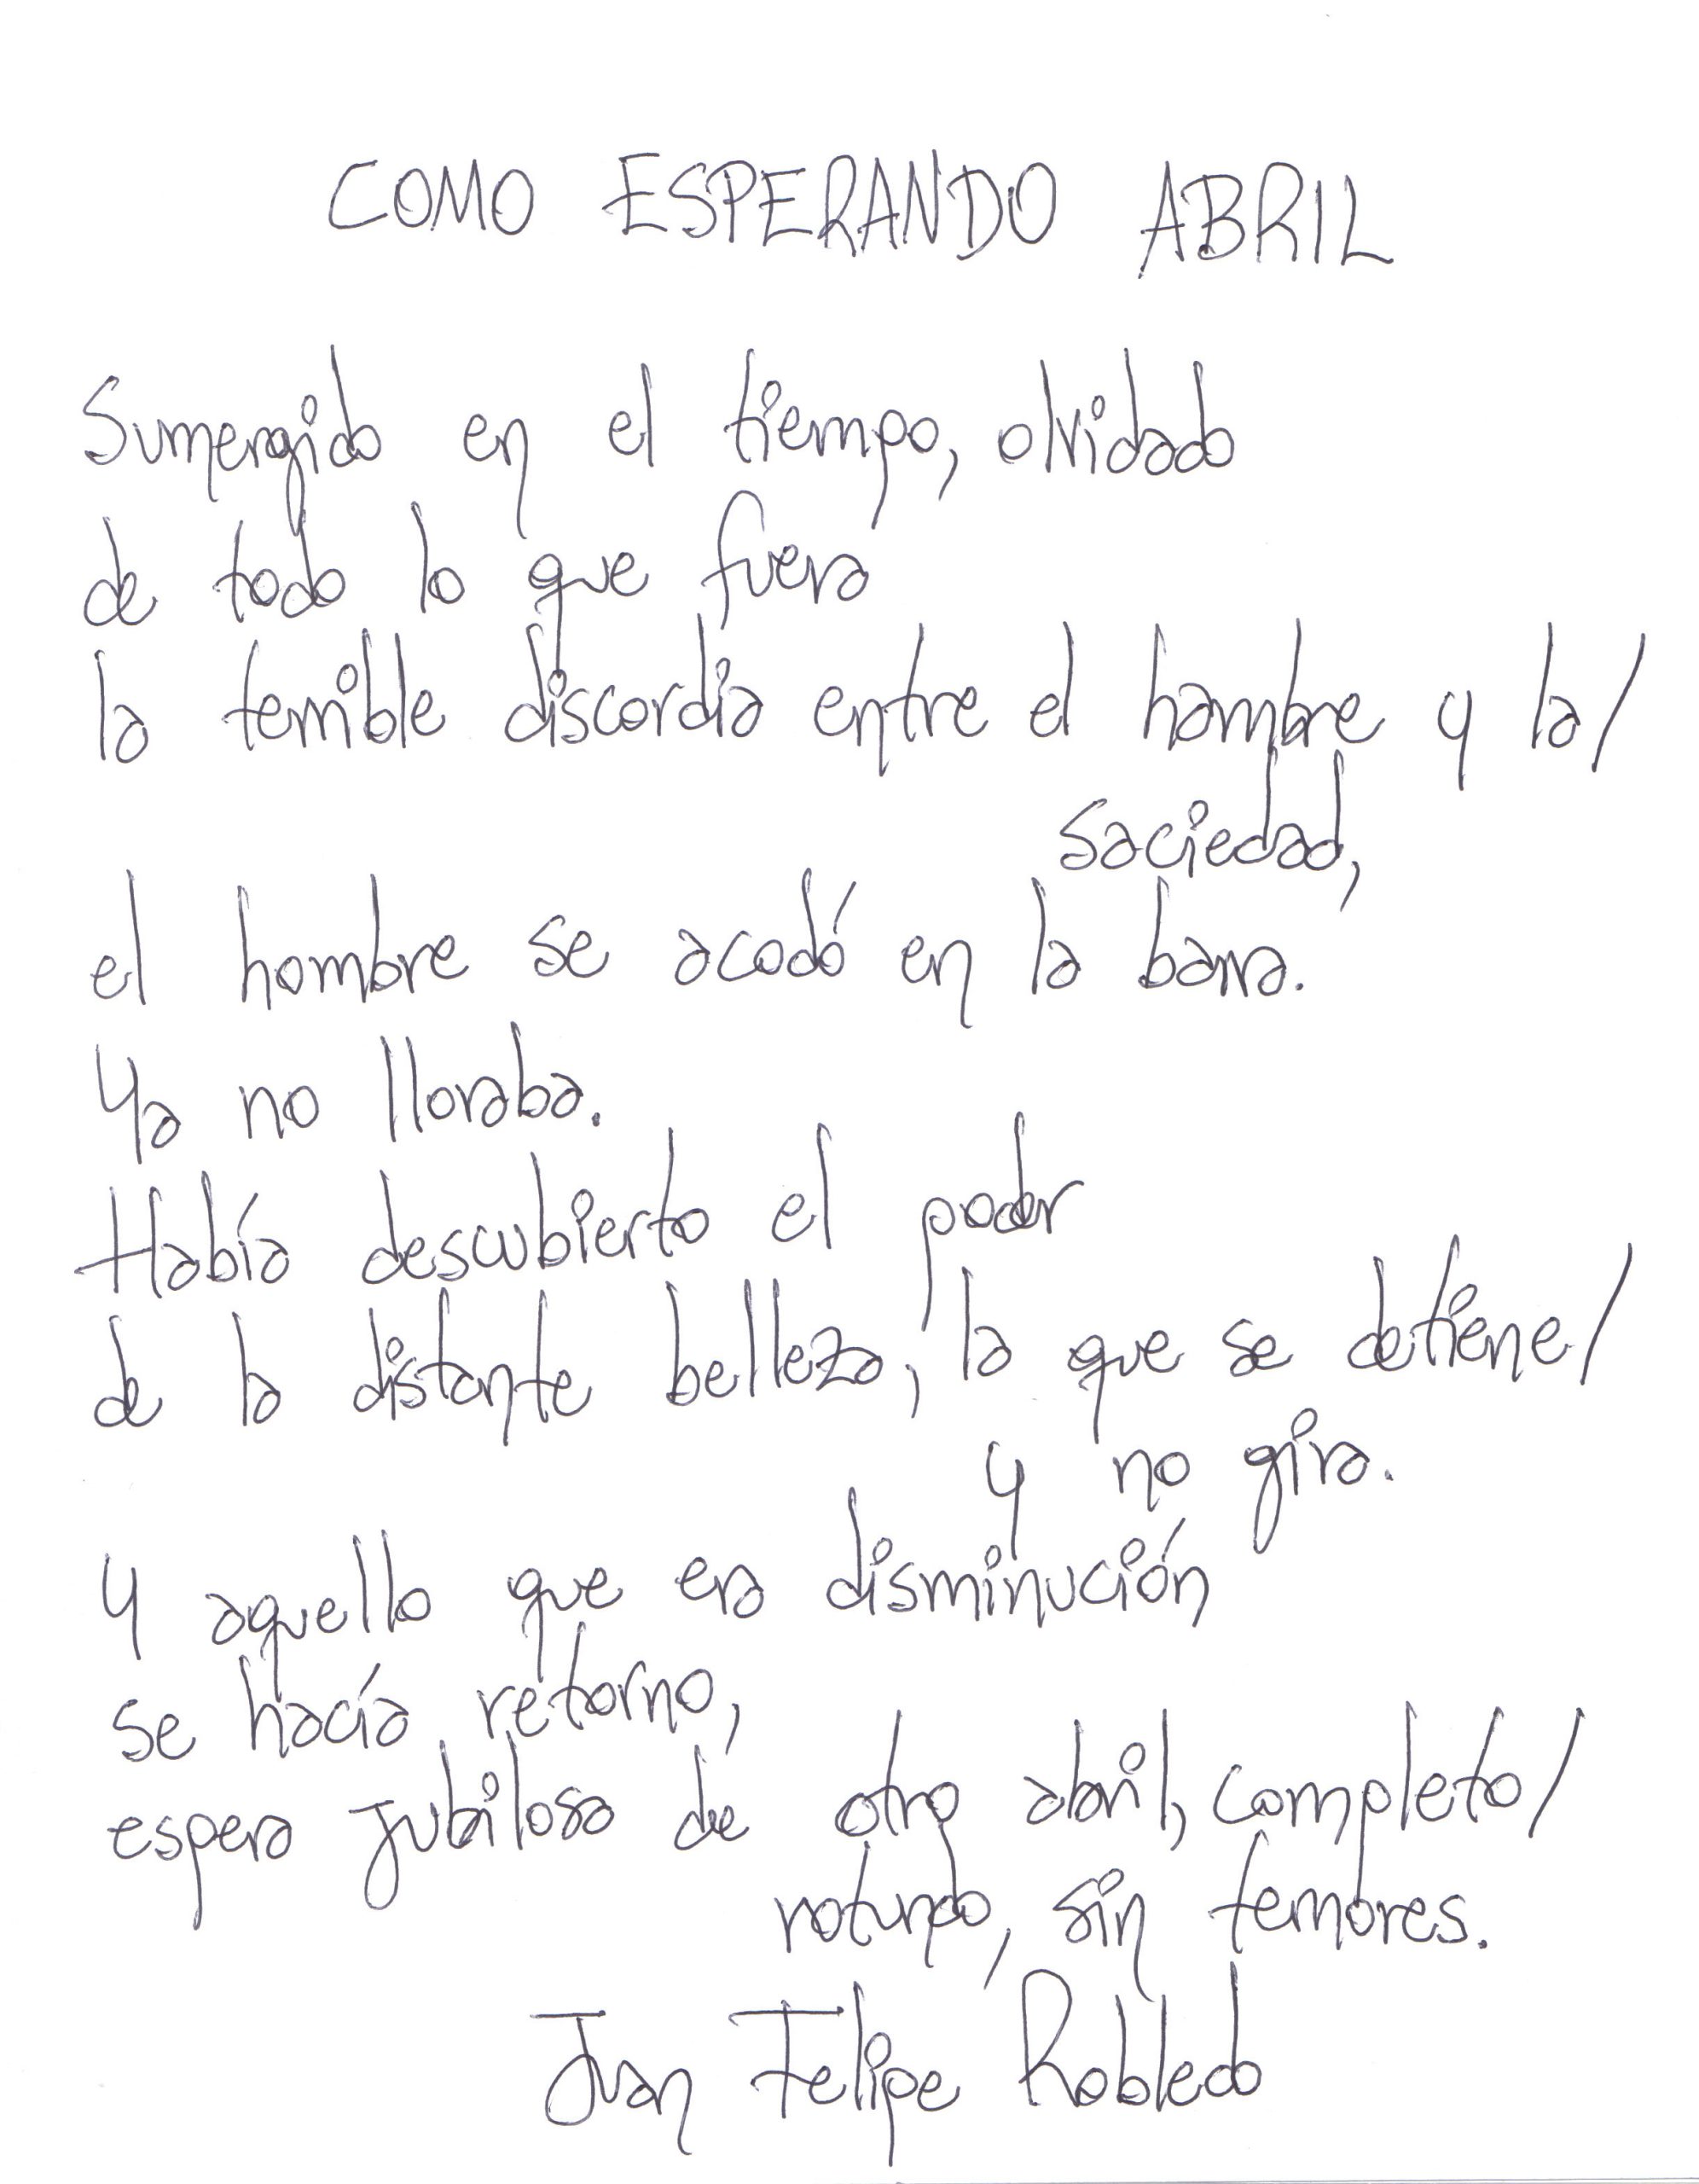 COMO ESPERANDO ABRIL
Sumergido en el tiempo, olvidado
de todo lo que fuera
la terrible discordia entre el hombre y la/
sociedad,
el hombre se acodó en la barra.
Ya no lloraba.
Había descubierto el poder
de la distante belleza, la que se detiene/
y no gira.
Y aquello que era disminución
se hacía retorno,
espera jubilosa de otro abril, completo/
rotundo, sin temores.
Juan Felipe Robledo